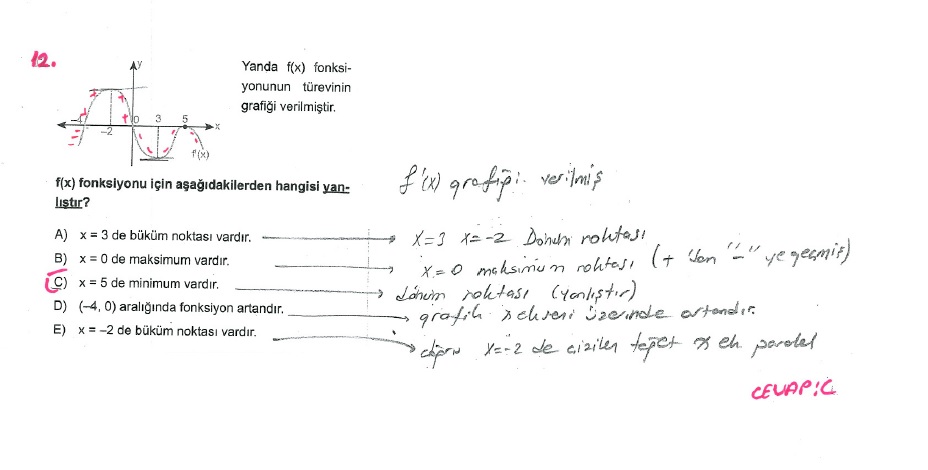 12.
Yanda f(x) fonksi-
yonunun türevinin
grafiği verilmiştir.
y
-4
-2
0
3
5
x
f'(x)
f(x) fonksiyonu için aşağıdakilerden hangisi yan-
lıştır?
A) x = 3 de büküm noktası vardır.
B) x = 0 de maksimum vardır.
C) x = 5 de minimum vardır.
D) (–4, 0) aralığında fonksiyon artandır.
E) x = –2 de büküm noktası vardır.
f'(x) grafiği verilmiş
x=3 x=-2 Dönüm noktası
x=0 maksimum noktası (+ 'dan "-" ye geçmiş)
dönüm noktası (yanlıştır)
grafik x ekseni üzerinde artandır.
doğru x=-2 de çizilen teğet x ek paralel
CEVAP:C